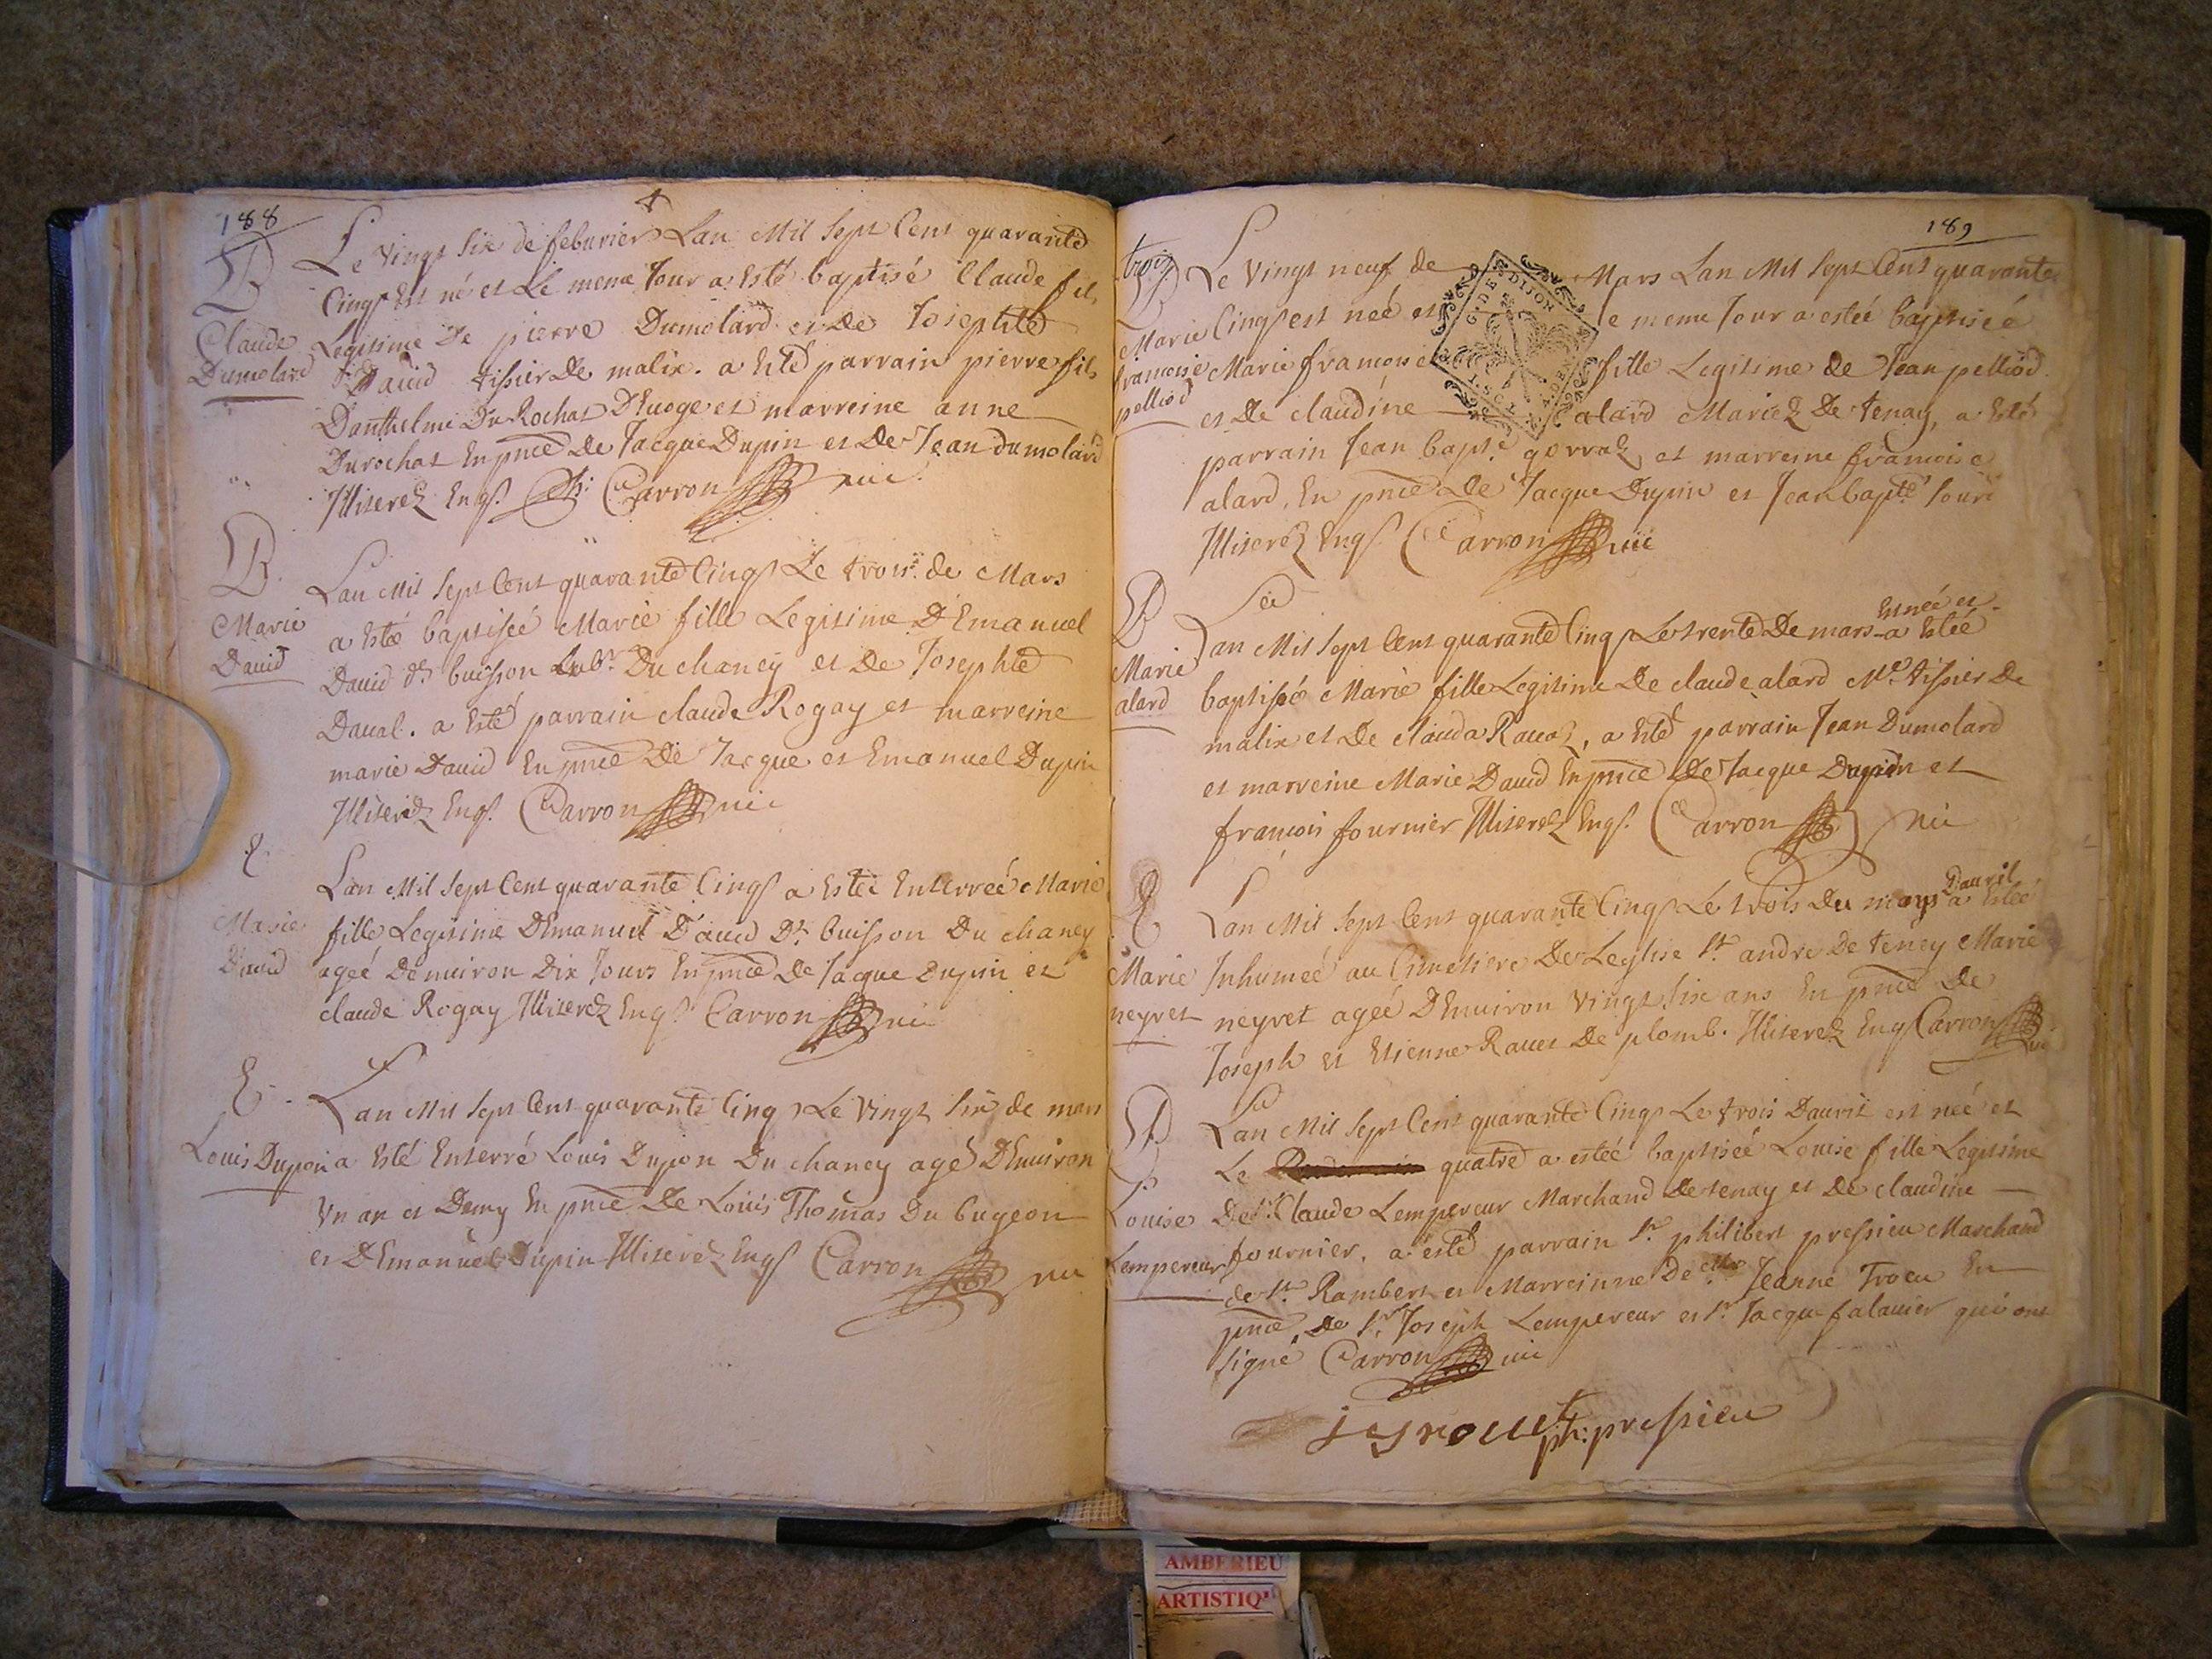 188
B
Claude
Dumolard
Le vingt six de feburier Lan Mil sept Cent quarante
Cinq Est né et Le meme Jour a Esté baptisé Claude fils
Legitime De pierre Dumolard et De Josephte
David tissier De malix. a Esté parrain pierre fils
Danthelme Du Rochat D'Euoge et marreine anne
Durochat En pnce De Jacque Dupin et De Jean dumolard
Illiterez Enqs. Carron vic.
B
Marie
David
Lan Mil Sept Cent quarante Cinq Le trois de Mars
a Esté baptiseé Marie fille Legitime D'Emanuel
David dt buisson Labr. Du chaney et De Josephte
Daual. a Esté parrain claude Rogay et marreine
marie David En pnce De Jacque et Emanuel Dupin
Illiterez Enqs. Carron vic
E
Marie
David
Lan Mil Sept Cent quarante Cinq a Esteé Enterreé Marie
fille Legitime D'Emanuel David Dt buisson Du chaney
ageé Denuiron Dix Jours En pnce De Jacque Dupin et
claude Rogay Illiterez Enqs Carron vic
E.
Louis Dupon
Lan Mil Sept Cent quarante Cinq Le Vingt Six de mars
a Esté Enterré Louis Dupon Du chaney agé D'Enuiron
Vn an et Demy En pnce De Louis Thomas Du bugeon
et D'Emanuel Dupin Illiterez Enqs Carron vic
189
trois
B
Marie
francoise
pelliod
Le Vingt neuf de Mars Lan Mil Sept Cent quarante
Cinq est neé et e meme Jour a esteé baptiseé
Marie francoise fille Legitime de Jean pelliod
et De claudine alard Mariez De tenay, a Esté
parrain Jean bapte gerraz et marreine francoise
alard. En pnce De Jacque Dupin et Jean bapte
Illiterez Enqs. Carron vic
G. DE DIJON
B
Marie
alard
Lan Mil Sept Cent quarante Cinq Le trente De mars Est neé et
a Esteé
baptiseé Marie fille Legitime De claude alard Me. tissier De
malix et De clauda Rauaz, a Esté parrain Jean Dumolard
et marreine Marie David En pnce De Jacque Dupin et
francois fournier Illiterez Enqs. Carron vic
E
Marie
neyret
Lan Mil Sept Cent quarante Cinq Le trois Du mois Dauril
a Esteé
Inhumeé au Cimetiere De Leglise St. andre De teney Marie
neyret ageé D'Enuiron Vingt Six ans En pnce De
Joseph et Etienne Rauet De plomb. Illiterez Enqs Carron vic
B
Louise
Lempereur
Lan Mil Sept Cent quarante Cinq Le trois Dauril est neé et
Le quatre a esteé baptiseé Louise fille Legitime
De Sr. Claude Lempereur Marchand de tenay et De claudine
fournier, a esté parrain Sr. philibert pressieu Marchand
de St. Rambert et Marreinne Delle Jeanne Trocu En
pnce, De Sr. Joseph Lempereur et Sr. Jacque falauier qui ont
signé Carron vic
ph: pressieu
AMBERIEU
ARTISTIQ